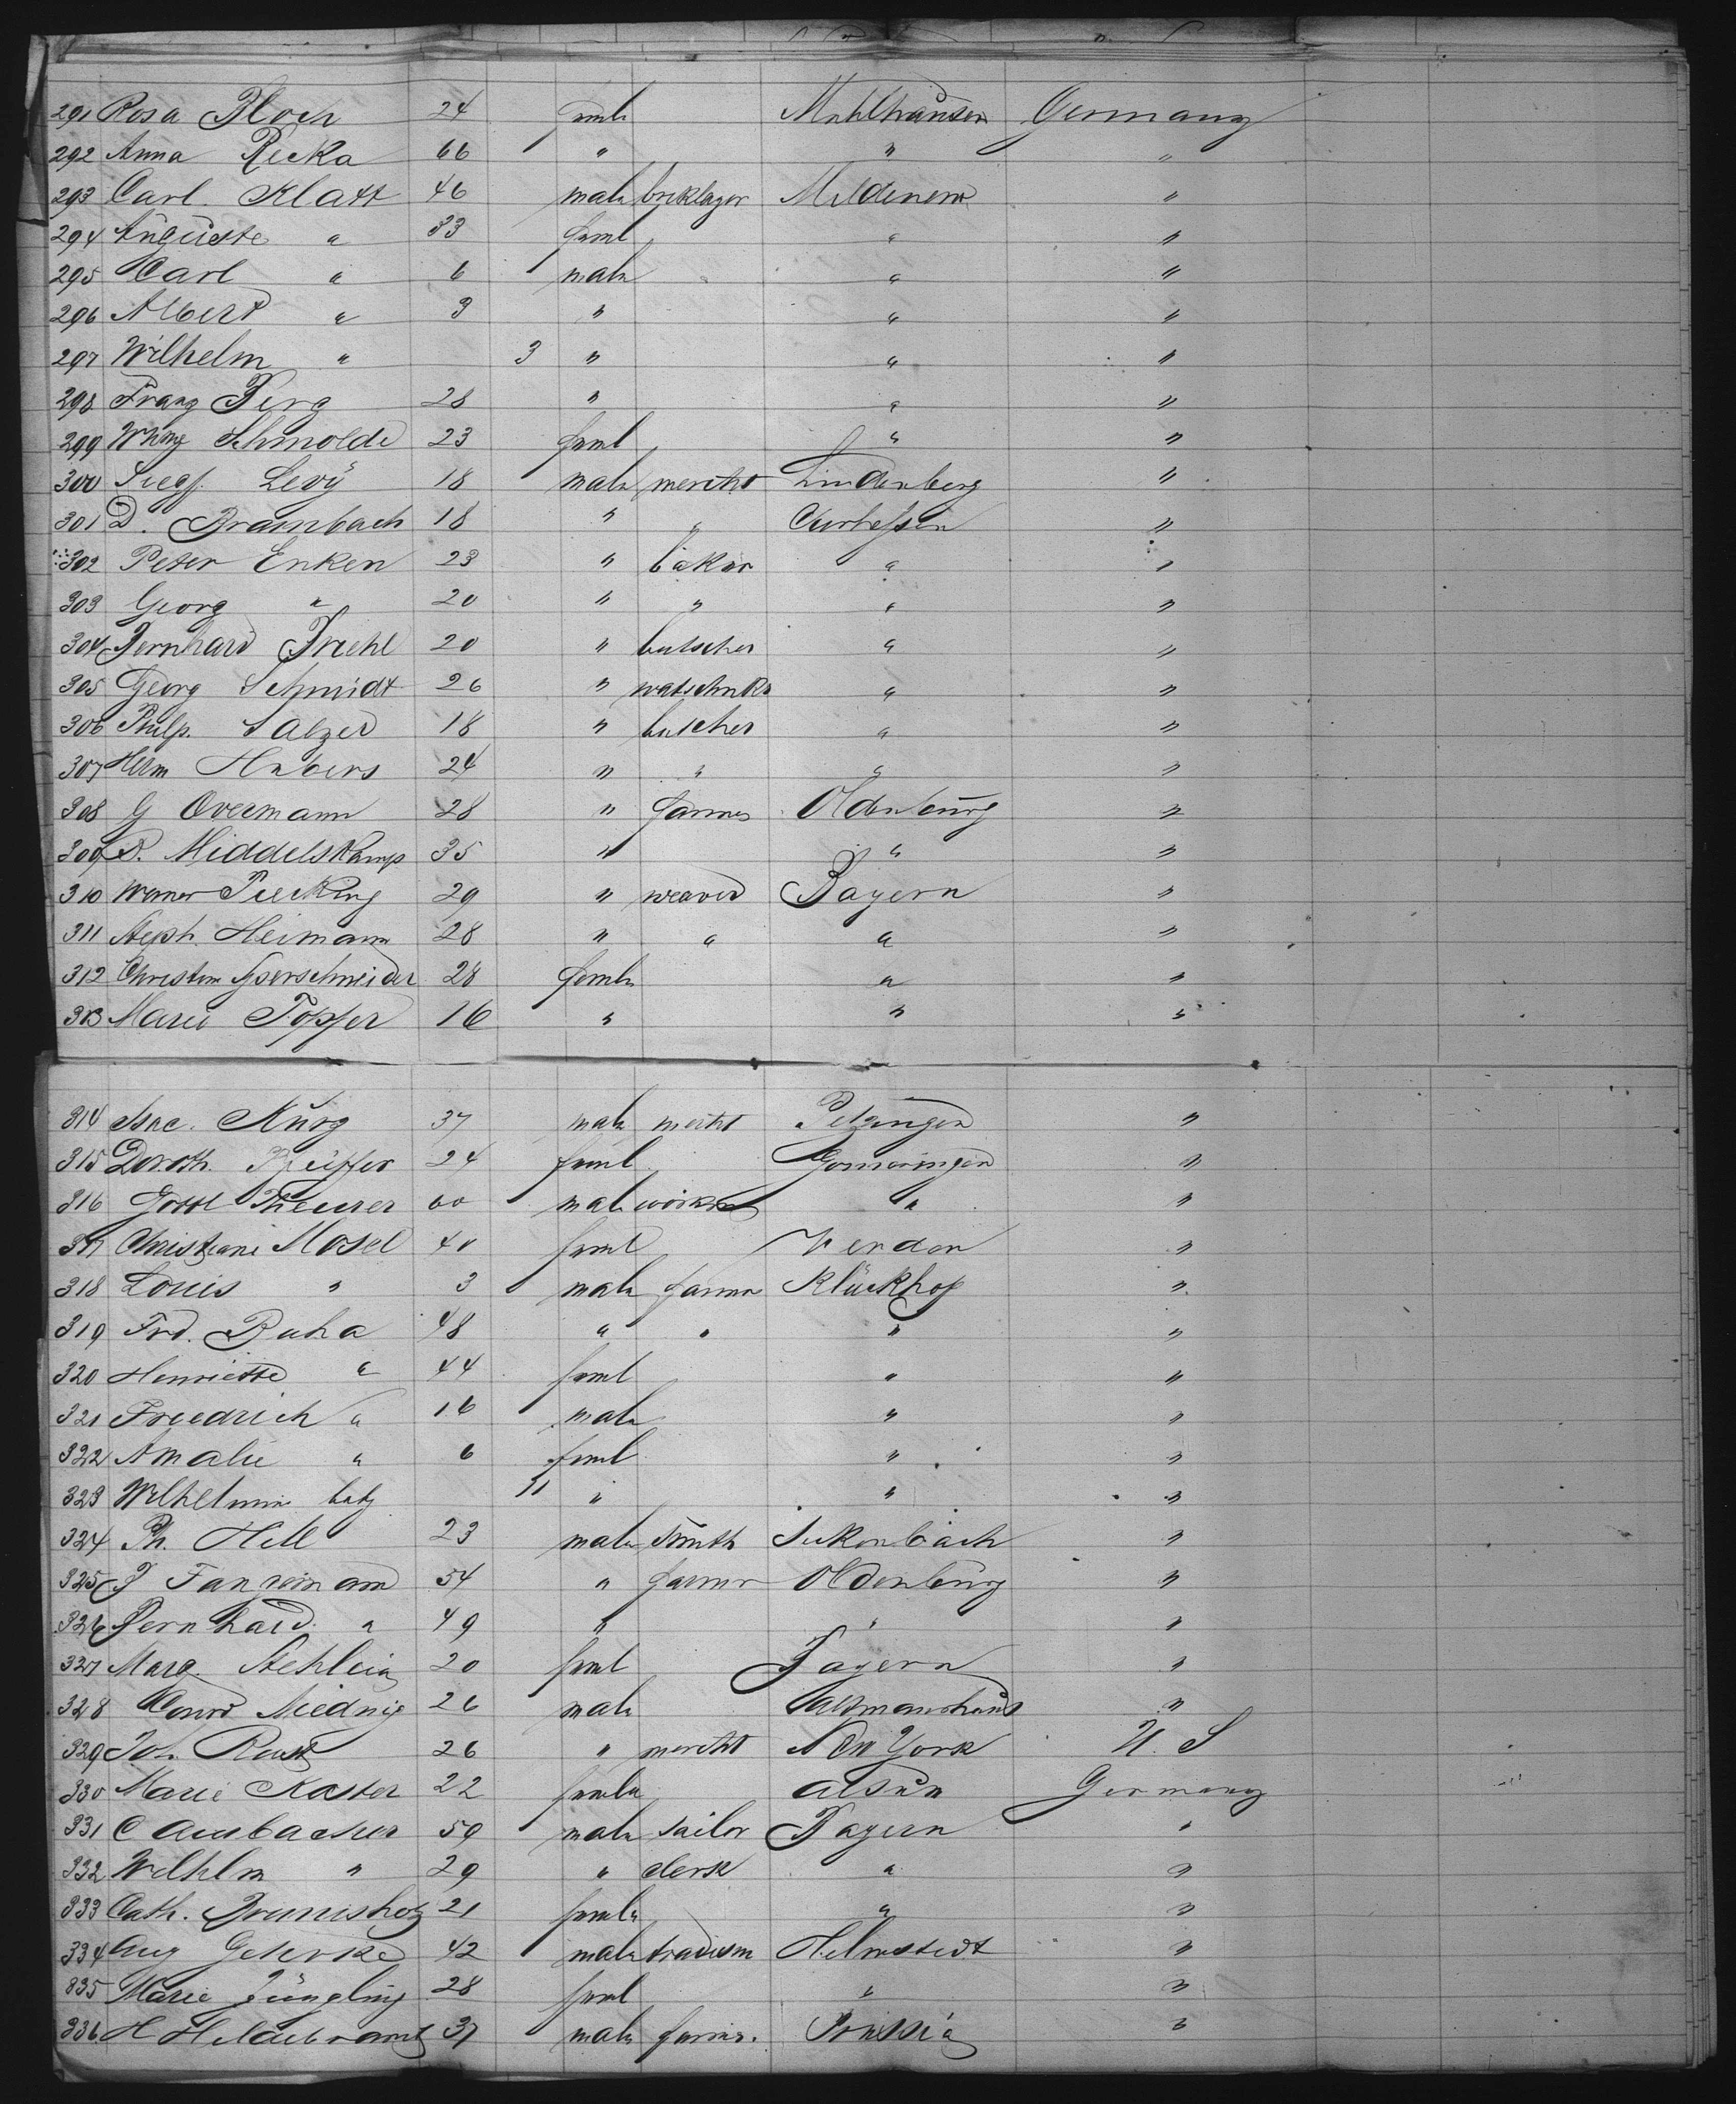 291 Rosa Bloch 24 femle Muhlhausen Germany
292 Anna Recka 66 " " "
293 Carl. Klatt 46 male bricklayer Mildenem "
294 Auguste " 33 feml " "
295 Carl " 6 male " "
296 Albert " 3 " " "
297 Wilhelm " 3 " " "
298 Franz Berg 28 " " "
299 Whmg Schmolde 23 feml " "
300 Siegf. Levy 18 male mercht Lindenberg "
301 D. Brambach 18 " " Curhessen "
302 Peter Enken 23 " baker " "
303 Georg " 20 " " " "
304 Bernhard Driehl 20 " butscher " "
305 Georg Schmidt 26 " watschmkr " "
306 Philp. Salzer 18 " butscher " "
307 Herm Hubers 24 " " " "
308 G Overmann 28 " farmer Oldenburg "
309 B. Middelskamp 35 " " "
310 Werner Piecking 29 " weaver Bayern "
311 Steph. Heimann 28 " " " "
312 Christine 28 femle " "
313 Marie Topfer 16 " " "
314 Isac. Kurz 37 male mercht "
315 Doroth. Pfeiffer 24 feml Gomaringen "
316 Gottl Theurer 60 male worker " "
317 Christiane Mosel 40 feml Verden "
318 Louis " 3 male farmer Kluckhof "
319 Frd. Buha 48 " " " "
320 Henriette " 44 feml " "
321 Friedrich " 16 male " "
322 Amalie " 6 feml " "
323 Wilhelmine baby 11 " " "
324 Ph. Hell 23 male smith Sickenbach "
325 J 54 " farmer Oldenburg "
326 Bernhard. " 49 " " "
327 Marg. Stehlein 20 feml Bayern "
328 Conrd Niednig 26 male "
329 Joh. Rust 26 " mercht New York U. S
330 Marie Koster 22 femle Germany
331 C Aubacher 59 male tailor Bayern "
332 Wilhlm " 29 " clerk " "
333 Cath. Brunisholz 21 femle " "
334 Aug Gehrke 42 male tradesm Helmstedt "
335 Marie Jüngling 28 feml " "
336. H Hildebrandt 37 male farmer. Prussia "